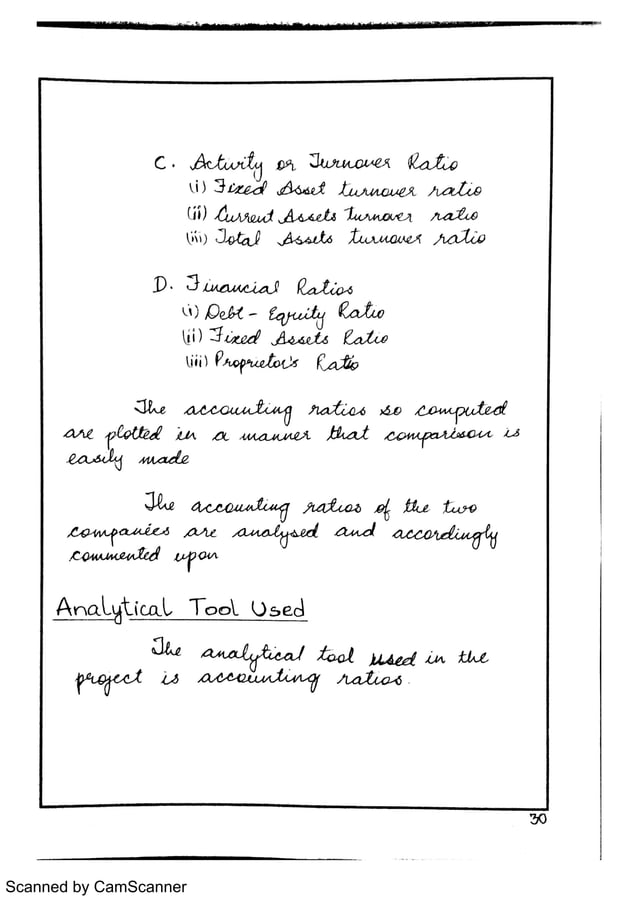 C. Activity or Turnover Ratio
(i) Fixed Asset turnover ratio
(ii) Current Assets Turnover ratio
(iii) Total Assets turnover ratio
D. Financial Ratios
(i) Debt - Equity Ratio
(ii) Fixed Assets Ratio
(iii) Proprietor's Ratio
The accounting ratios so computed
are plotted in a manner that comparison is
easily made
The accounting ratios of the two
companies are analysed and accordingly
commented upon
Analytical Tool Used
The analytical tool used in the
project is accounting ratios.
30
Scanned by CamScanner